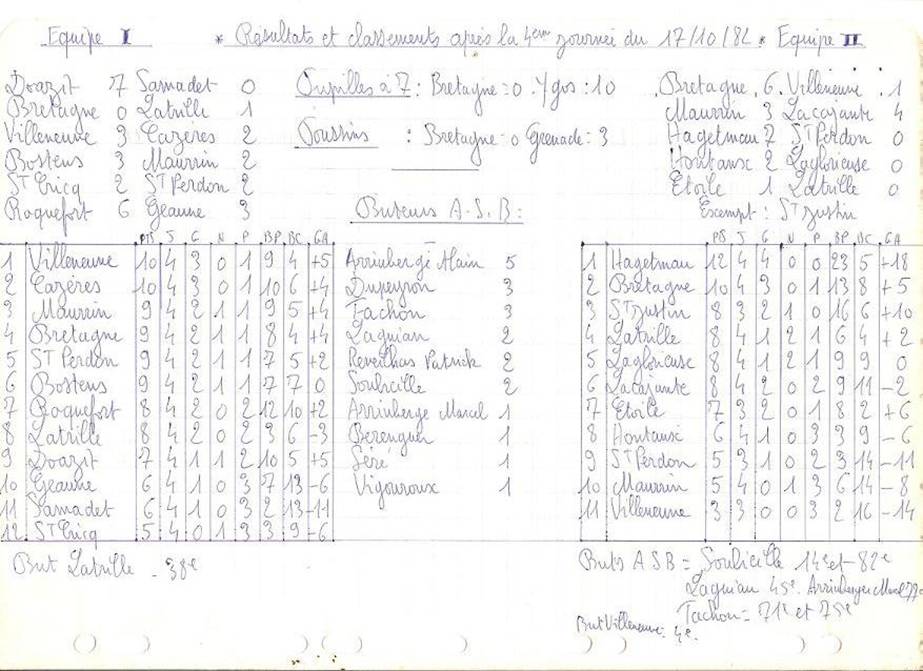 Equipe I * Résultats et classements après la 4em journée du 17/10/82 * Equipe II
Doazit 7 Samadet 0
Bretagne 0 Latrille 1
Villeneuve 3 Cazères 2
Bostens 3 Maurrin 2
St Cricq 2 St Perdon 2
Roquefort 6 Geaune 3
Pupilles à 7 : Bretagne = 0 . Ygos : 10
Poussins : Bretagne = 0 Grenade = 3
Bretagne 6 Villeneuve 1
Maurrin 3 Lacajunte 4
Hagetmau 7 St Perdon 0
Hontanx 2 Laglorieuse 0
Etoile 1 Latrille 0
Exempt : St Justin
Buteurs A.S.B :
Pts J G N P BP BC GA
1 Villeneuve 10 4 3 0 1 9 4 +5
2 Cazères 10 4 3 0 1 10 6 +4
3 Maurrin 9 4 2 1 1 9 5 +4
4 Bretagne 9 4 2 1 1 8 4 +4
5 St Perdon 9 4 2 1 1 7 5 +2
6 Bostens 9 4 2 1 1 7 7 0
7 Roquefort 8 4 2 0 2 12 10 +2
8 Latrille 8 4 2 0 2 3 6 -3
9 Doazit 7 4 1 1 2 10 5 +5
10 Geaune 6 4 1 0 3 7 13 -6
11 Samadet 6 4 1 0 3 2 13 -11
12 St Cricq 5 4 0 1 3 3 9 -6
Arrinbergé Alain 5
Dupeyron 3
Tachon 3
Laguian 2
Reveilhas Patrick 2
Soubicille 2
Arrinberge Marcel 1
Berenguer 1
Séré 1
Vigouroux 1
Pts J G N P BP BC GA
1 Hagetmau 12 4 4 0 0 23 5 +18
2 Bretagne 10 4 3 0 1 13 8 +5
3 St Justin 8 3 2 1 0 16 6 +10
4 Latrille 8 4 1 2 1 6 4 +2
5 Laglorieuse 8 4 1 2 1 9 9 0
6 Lacajunte 8 4 2 0 2 9 11 -2
7 Etoile 7 3 2 0 1 8 2 +6
8 Hontanx 6 4 1 0 3 3 9 -6
9 St Perdon 5 3 1 0 2 3 14 -11
10 Maurrin 5 4 0 1 3 6 14 -8
11 Villeneuve 3 3 0 0 3 2 16 -14
But Latrille - 38e
Buts A S B = Soubicille 14e et 82e
Laguian 45e. Arrinberger Marcel 77e
Tachon = 71e et 75e
But Villeneuve : 4e.